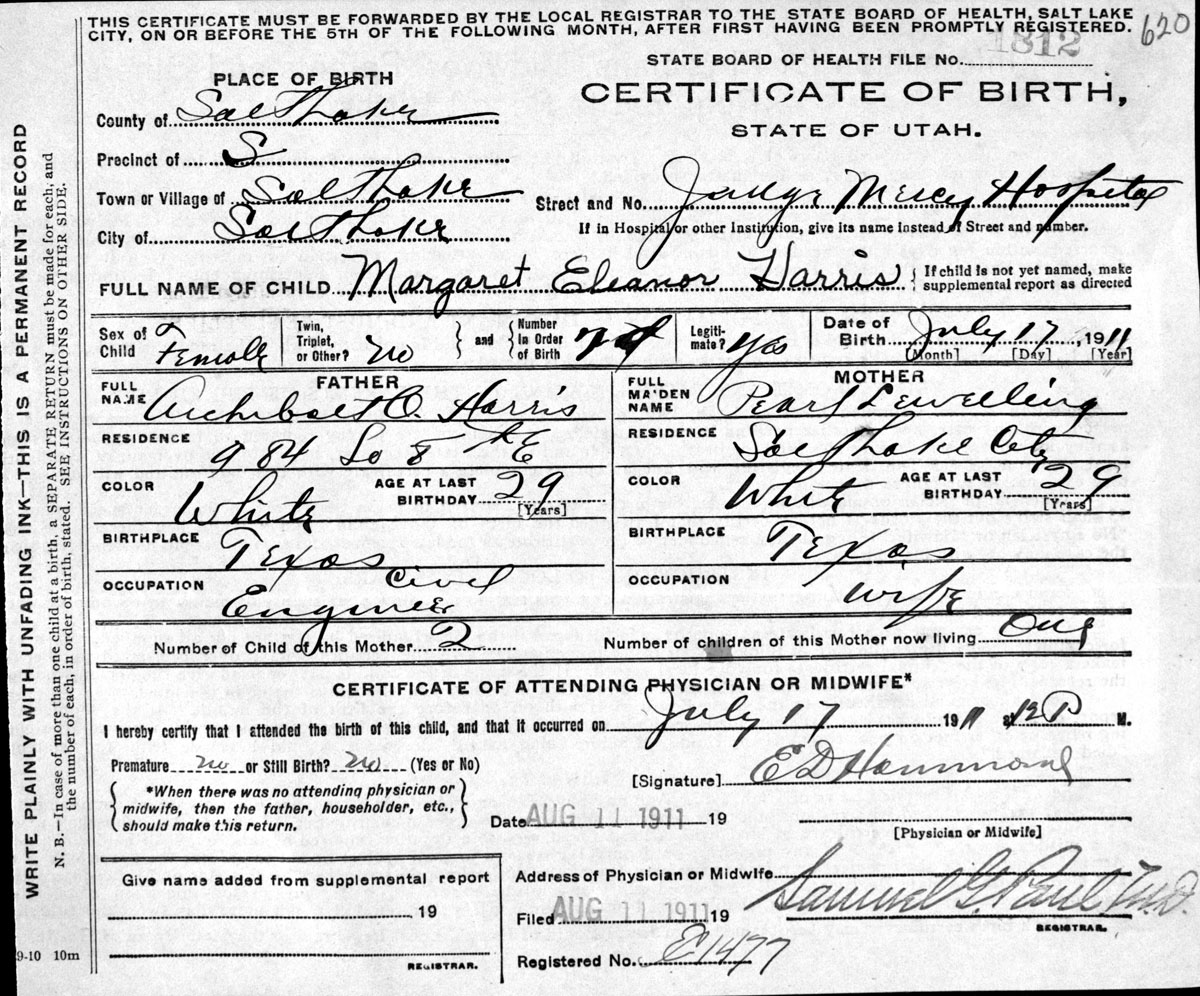 THIS CERTIFICATE MUST BE FORWARDED BY THE LOCAL REGISTRAR TO THE STATE BOARD OF HEALTH, SALT LAKE
CITY, ON OR BEFORE THE 5TH OF THE FOLLOWING MONTH, AFTER FIRST HAVING BEEN PROMPTLY REGISTERED.
620
1812
STATE BOARD OF HEALTH FILE No.
PLACE OF BIRTH
CERTIFICATE OF BIRTH,
STATE OF UTAH.
County of Salt Lake
Precinct of S
Town or Village of Salt Lake
Street and No. Judge Mercy Hospital
City of Salt Lake
If in Hospital or other Institution, give its name instead of Street and number.
FULL NAME OF CHILD Margaret Eleanor Harris { If child is not yet named, make
supplemental report as directed
Sex of Child Female
Twin, Triplet, or Other? no
} and { Number In Order of Birth
Legiti-mate? Yes
Date of Birth July 17, 1911
[Month] [Day] [Year]
FATHER
FULL NAME Archibald O. Harris
MOTHER
FULL MAIDEN NAME Pearl Lewelling
RESIDENCE 984 So 8th E
RESIDENCE Salt Lake City
COLOR White
AGE AT LAST BIRTHDAY 29 [Years]
COLOR White
AGE AT LAST BIRTHDAY 29 [Years]
BIRTHPLACE Texas
BIRTHPLACE Texas
OCCUPATION Civil Engineer
OCCUPATION Wife
Number of Child of this Mother 2
Number of children of this Mother now living One
CERTIFICATE OF ATTENDING PHYSICIAN OR MIDWIFE*
I hereby certify that I attended the birth of this child, and that it occurred on July 17 1911 at 12 P M.
Premature no or Still Birth? no (Yes or No)
[Signature] E D Hammond
{ *When there was no attending physician or
midwife, then the father, householder, etc.,
should make this return. }
Date AUG 11 1911 19
[Physician or Midwife]
Give name added from supplemental report
19
REGISTRAR.
Address of Physician or Midwife
Filed AUG 11 1911 19
Samuel G. Paul M.D.
REGISTRAR.
Registered No. E1477
9-10 10m
WRITE PLAINLY WITH UNFADING INK—THIS IS A PERMANENT RECORD
N. B.—In case of more than one child at a birth, a SEPARATE RETURN must be made for each, and
the number of each, in order of birth, stated. SEE INSTRUCTIONS ON OTHER SIDE.